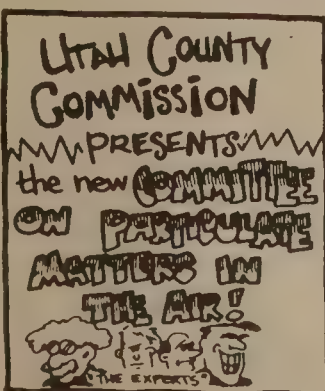 UTAH COUNTY
COMMISSION
PRESENTS
the new COMMITTEE
ON PARTICULATE
MATTERS IN
THE AIR!
"THE EXPERTS"